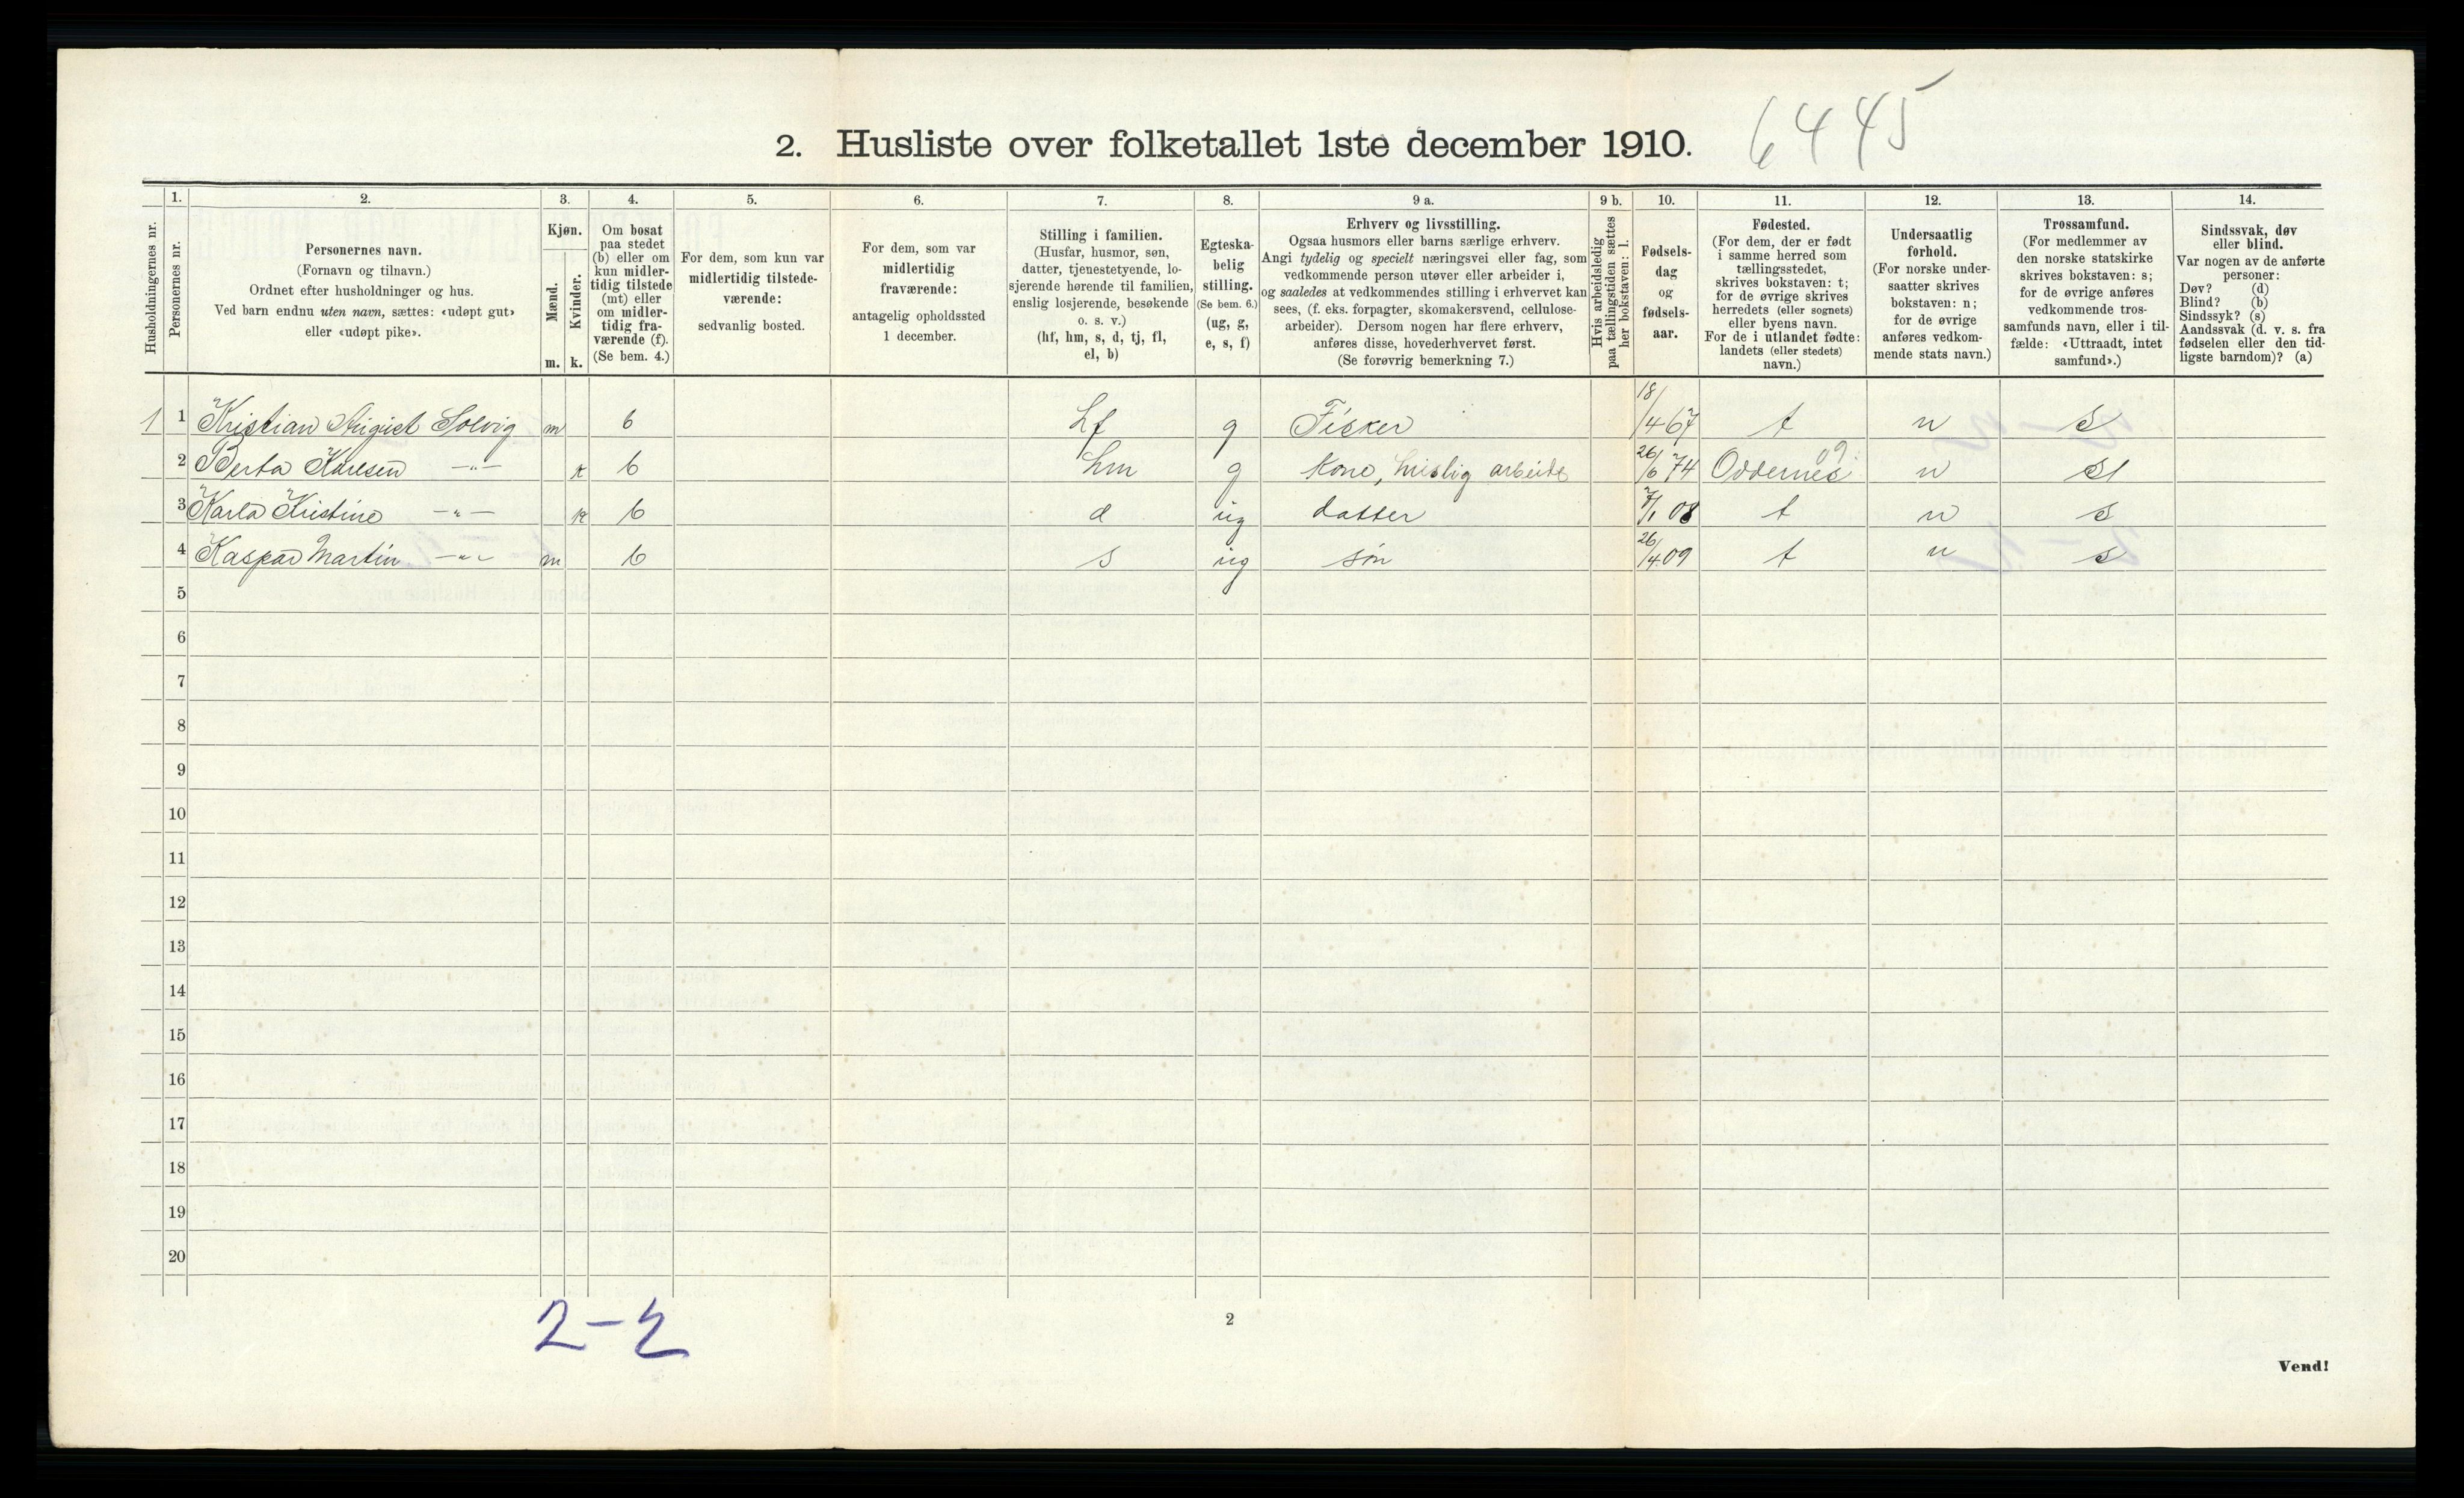 2. Husliste over folketallet 1ste december 1910. 6445
Husholdningernes nr.
1. Personernes nr.
2. Personernes navn.
(Fornavn og tilnavn.)
Ordnet efter husholdninger og hus.
Ved barn endnu uten navn, sættes: «udøpt gut»
eller «udøpt pike».
3. Kjøn.
Mænd. m.
Kvinder. k.
4. Om bosat
paa stedet
(b) eller om
kun midler-
tidig tilstede
(mt) eller
om midler-
tidig fra-
værende (f).
(Se bem. 4.)
5. For dem, som kun var
midlertidig tilstede-
værende:
sedvanlig bosted.
6. For dem, som var
midlertidig
fraværende:
antagelig opholdssted
1 december.
7. Stilling i familien.
(Husfar, husmor, søn,
datter, tjenestetyende, lo-
sjerende hørende til familien,
enslig losjerende, besøkende
o. s. v.)
(hf, hm, s, d, tj, fl,
el, b)
8. Egteska-
belig
stilling.
(Se bem. 6.)
(ug, g,
e, s, f)
9 a. Erhverv og livsstilling.
Ogsaa husmors eller barns særlige erhverv.
Angi tydelig og specielt næringsvei eller fag, som
vedkommende person utøver eller arbeider i,
og saaledes at vedkommendes stilling i erhvervet kan
sees, (f. eks. forpagter, skomakersvend, cellulose-
arbeider). Dersom nogen har flere erhverv,
anføres disse, hovederhvervet først.
(Se forøvrig bemerkning 7.)
9 b. Hvis arbeidsledig
paa tællingstiden sættes
her bokstaven: l.
10. Fødsels-
dag
og
fødsels-
aar.
11. Fødested.
(For dem, der er født
i samme herred som
tællingsstedet,
skrives bokstaven: t;
for de øvrige skrives
herredets (eller sognets)
eller byens navn.
For de i utlandet fødte:
landets (eller stedets)
navn.)
12. Undersaatlig
forhold.
(For norske under-
saatter skrives
bokstaven: n;
for de øvrige
anføres vedkom-
mende stats navn.)
13. Trossamfund.
(For medlemmer av
den norske statskirke
skrives bokstaven: s;
for de øvrige anføres
vedkommende tros-
samfunds navn, eller i til-
fælde: «Uttraadt, intet
samfund».)
14. Sindssvak, døv
eller blind.
Var nogen av de anførte
personer:
Døv? (d)
Blind? (b)
Sindssyk? (s)
Aandssvak (d. v. s. fra
fødselen eller den tid-
ligste barndom)? (a)
1 1 Kristian August Solvig m b hf g Fisker 18/4 67 t n s
2 Berta Karlsen —"— k b hm g Kone, huslig arbeide 26/6 74 Oddernes 09 n s
3 Karla Kristine —"— k b d ug datter 7/1 08 t n s
4 Kaspar Martin —"— m b s ug søn 26/4 09 t n s
5
6
7
8
9
10
11
12
13
14
15
16
17
18
19
20
2-2
2
Vend!